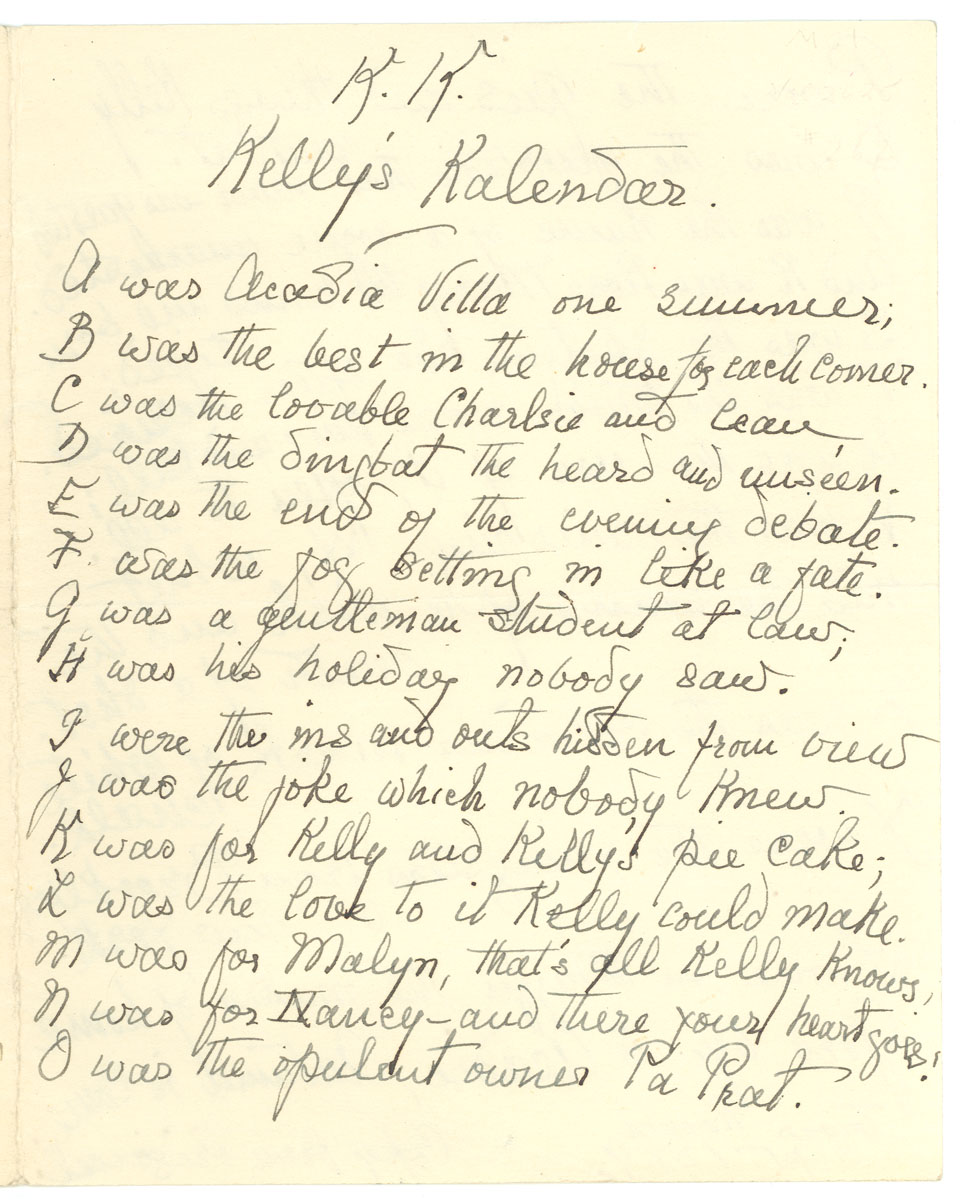 K. K.
Kelly's Kalendar.
A was Acadia Villa one summer;
B was the best in the house for each comer.
C was the lovable Charlsie and lean,
D was the dingbat the heard and unseen.
E was the end of the evening debate.
F. was the fog setting in like a fate.
G was a gentleman student at law;
H was his holiday nobody saw.
I were the ins and outs hidden from view
J was the joke which nobody knew.
K was for Kelly and Kelly's pie cake;
L was the love to it Kelly could make.
M was for Malyn, that's all Kelly knows,
N was for Nancy – and there your heart goes!
O was the opulent owner Pa Prat.